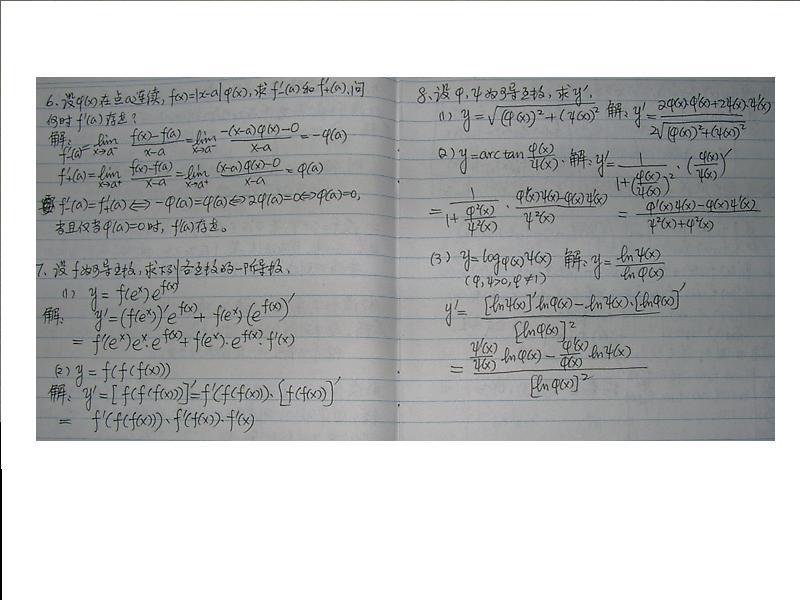 6、设φ(x)在点a连续, f(x)=|x-a|φ(x), 求f'₋(a)和f'₊(a), 问
何时f'(a)存在?
解: f'₋(a)=lim_{x→a⁻} (f(x)-f(a))/(x-a) = lim_{x→a⁻} (-(x-a)φ(x)-0)/(x-a) = -φ(a)
f'₊(a)=lim_{x→a⁺} (f(x)-f(a))/(x-a) = lim_{x→a⁺} ((x-a)φ(x)-0)/(x-a) = φ(a)
f'₋(a)=f'₊(a)⇔-φ(a)=φ(a)⇔2φ(a)=0⇔φ(a)=0,
当且仅当φ(a)=0时, f'(a)存在。
7、设f为可导函数, 求下列各函数的一阶导数、
(1) y=f(eˣ)e^{f(x)}
解: y'=(f(eˣ))'e^{f(x)}+f(eˣ)(e^{f(x)})'
=f'(eˣ)eˣ·e^{f(x)}+f(eˣ)·e^{f(x)}·f'(x)
(2) y=f(f(f(x)))
解: y'=[f(f(f(x)))]'=f'(f(f(x)))·[f(f(x))]'
= f'(f(f(x)))·f'(f(x))·f'(x)
8、设φ,ψ为可导函数, 求y'.
(1) y=√((φ(x))²+(ψ(x))²) 解: y'=(2φ(x)·φ'(x)+2ψ(x)·ψ'(x))/(2√((φ(x))²+(ψ(x))²))
(2) y=arctan φ(x)/ψ(x). 解: y'=1/(1+(φ(x)/ψ(x))²)·(φ(x)/ψ(x))'
=1/(1+φ²(x)/ψ²(x))·(φ'(x)ψ(x)-φ(x)ψ'(x))/ψ²(x) =(φ'(x)ψ(x)-φ(x)ψ'(x))/(ψ²(x)+φ²(x))
(3) y=log_{φ(x)}ψ(x) 解: y=lnψ(x)/lnφ(x)
(φ,ψ>0, φ≠1)
y'=([lnψ(x)]'lnφ(x)-lnψ(x)·[lnφ(x)]')/[lnφ(x)]²
=(ψ'(x)/ψ(x) lnφ(x)-φ'(x)/φ(x) lnψ(x))/[lnφ(x)]²